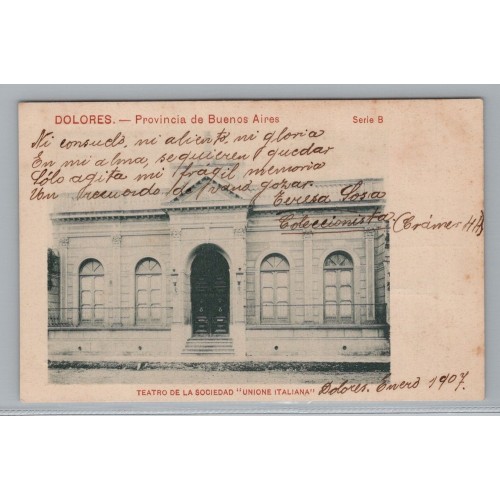 DOLORES. — Provincia de Buenos Aires Serie B
Ni consuelo, ni aliento, ni gloria
En mi alma, se quieren quedar
Sólo agita mi fragil memoria
Un recuerdo de vano gozar.
Teresa Sosa
Coleccionista (Crámer
TEATRO DE LA SOCIEDAD "UNIONE ITALIANA" Dolores. Enero 1907.